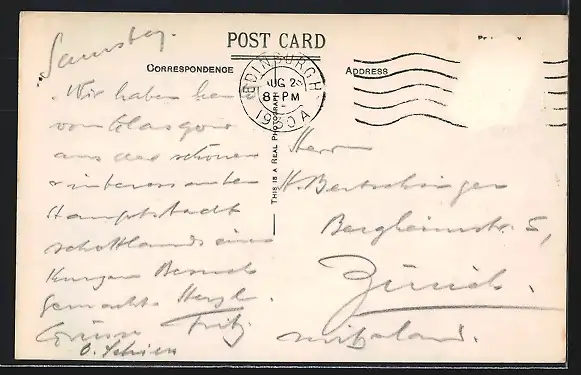 Samstag.
POST CARD
CORRESPONDENCE
ADDRESS
EDINBURGH
AUG 2
8 PM
1930
A
THIS IS A REAL PHOTOGRAPH
Wir haben
von Glasgow
aus der schönen
& interessanten
Hauptstadt
Schottlands einen
kurzen Besuch
gemacht. Herzl.
Grüsse Fritz
Herrn
H. Bertschinger
5,
Zürich.
Switzerland.